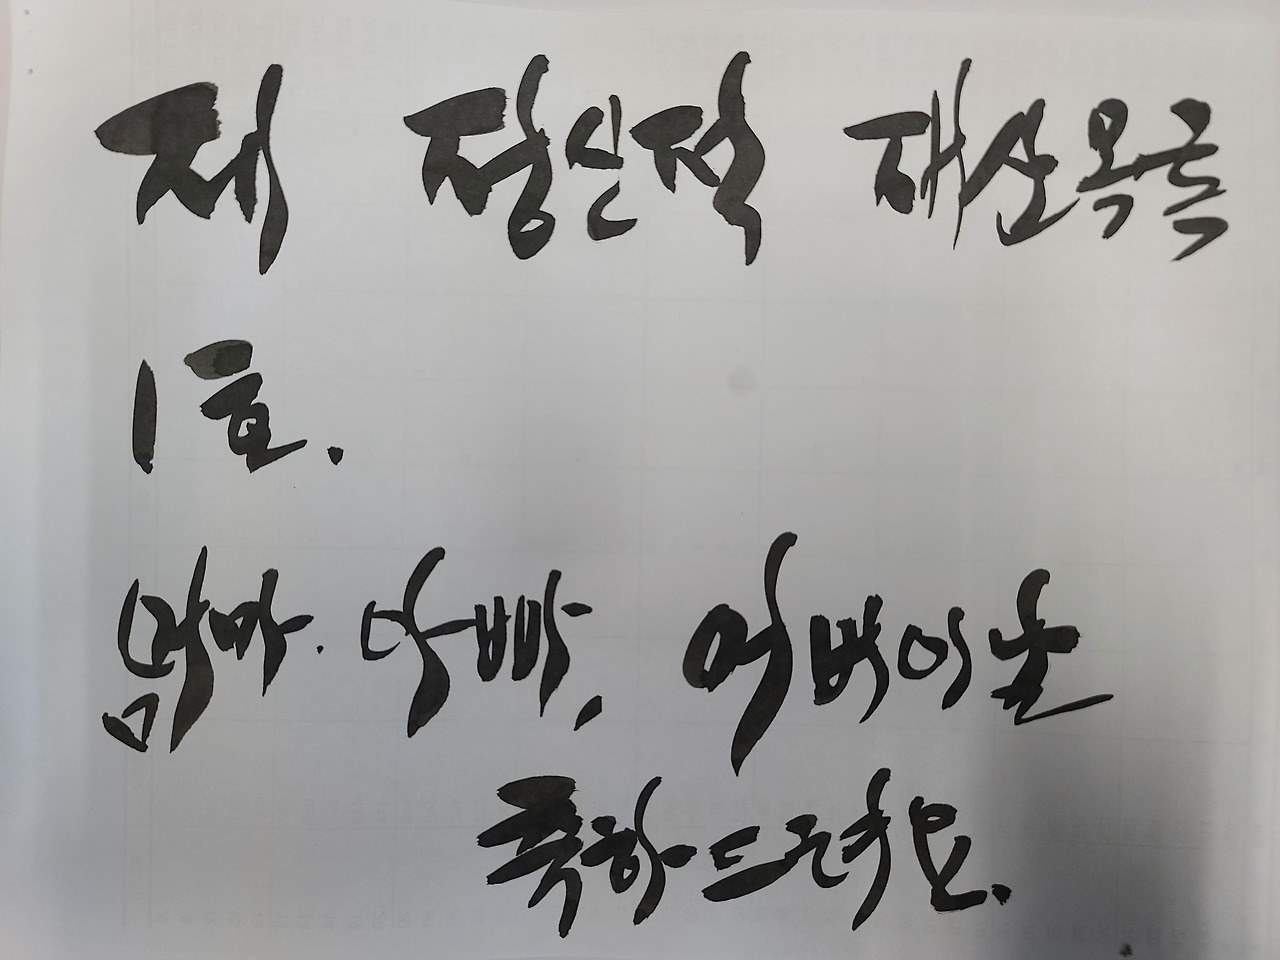 저 정신적 재산목록
1호.
엄마. 아빠. 어버이날
축하드려요.